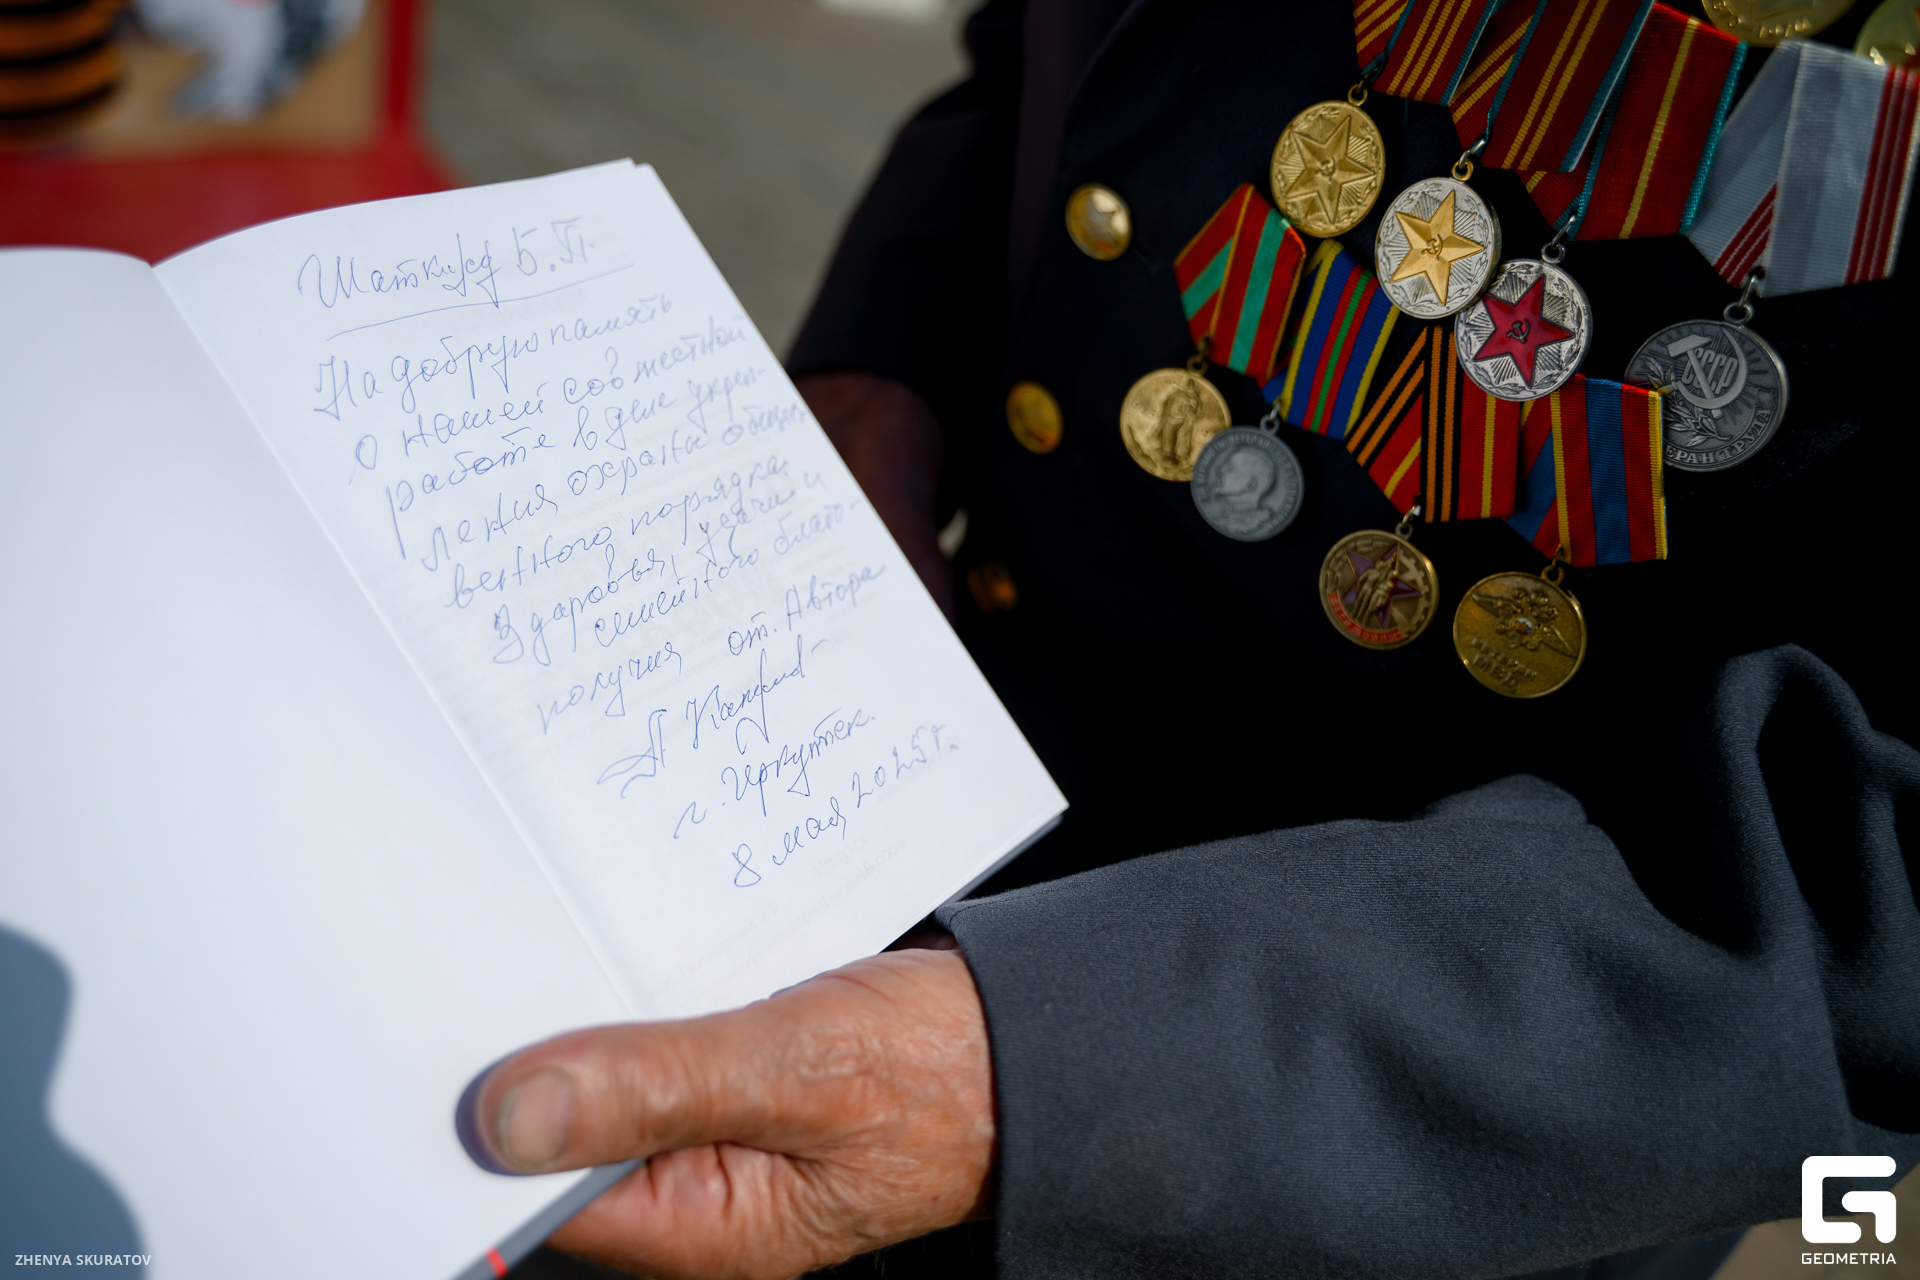 Шаткус Б.П.
На добрую память
о нашей совместной
работе в деле укреп-
ления охраны общест-
венного порядка.
Здоровья, удачи и
семейного благо-
получия от Автора
А
г. Иркутск.
8 мая 2025 г.
СССР
ВЕТЕРАН ТРУДА
ZHENYA SKURATOV
GEOMETRIA